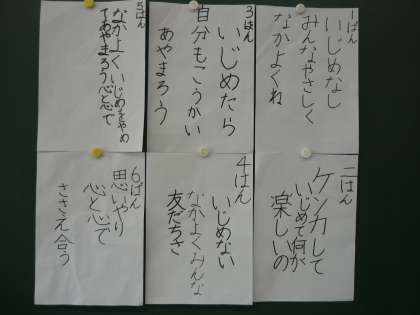 一ぱん
いじめなし
みんなやさしく
なかよくね
二はん
ケンカして
いじめて何が
楽しいの
3ぱん
いじめたら
自分もこうかい
あやまろう
4はん
いじめない
なかよくみんな
友だちさ
5はん
なかよくいじめをやめ
てあやまろう心と心で
6ぱん
思いやり
心と心で
ささえ合う